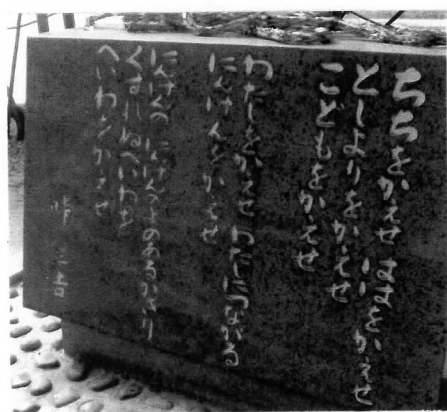 ちちをかえせ ははをかえせ
としよりをかえせ
こどもをかえせ
わたしをかえせ わたしにつながる
にんげんをかえせ
にんげんの にんげんのよのあるかぎり
くずれぬへいわを
へいわをかえせ
峠三吉